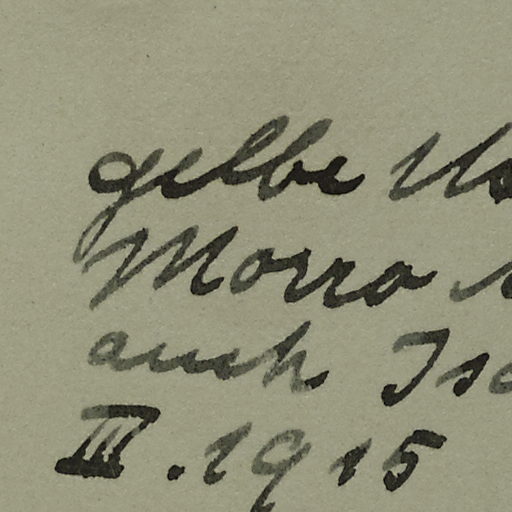 gelbe
Morro
auch
III. 1915